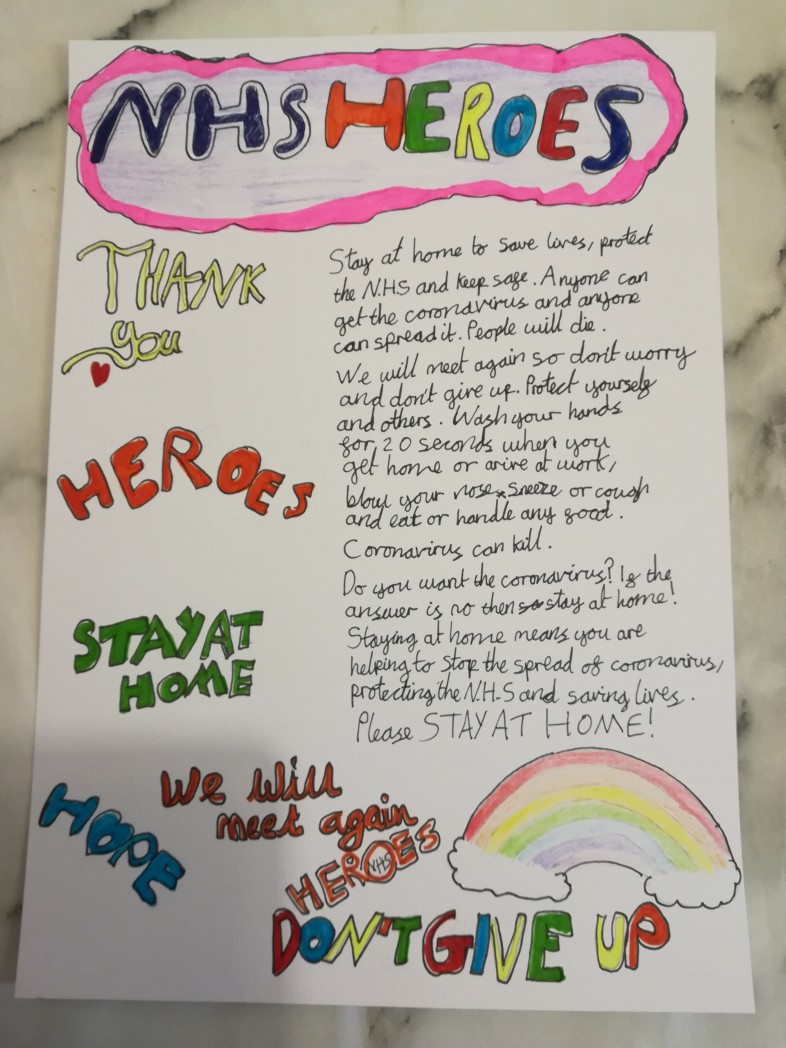 NHS HEROES
THANK
you
HEROES
STAY AT
HOME
Stay at home to save lives, protect
the N.H.S and keep safe. Anyone can
get the coronavirus and anyone
can spread it. People will die.
We will meet again so don't worry
and don't give up. Protect yourself
and others. Wash your hands
for 20 seconds when you
get home or arive at work,
blow your nose, sneeze or cough
and eat or handle any food.
Coronavirus can kill.
Do you want the coronavirus? If the
answer is no then so stay at home!
Staying at home means you are
helping to stop the spread of coronavirus,
protecting the N.H.S and saving lives.
Please STAY AT HOME!
HOPE
We will
meet again
HEROES
NHS
DON'T GIVE UP